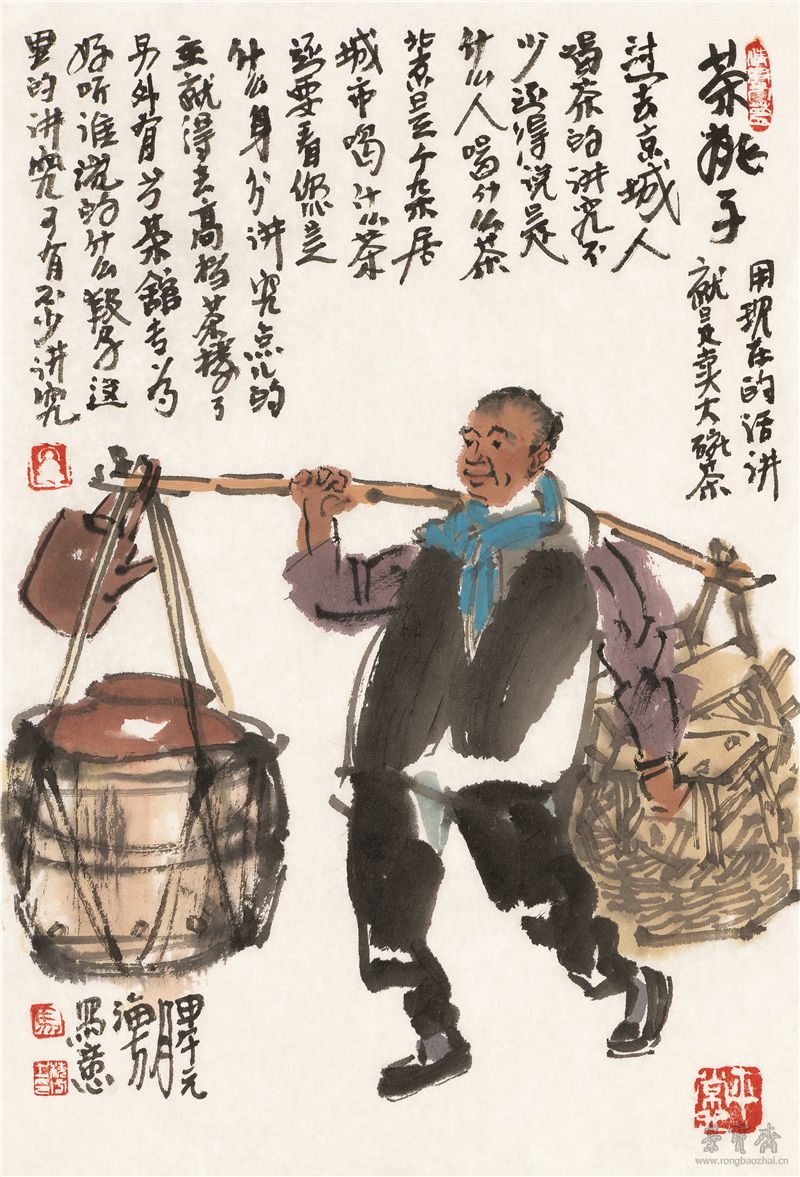 茶挑子
用现在的话讲
就是卖大碗茶
过去京城人
喝茶的讲究不
少还得说是
什么人喝什么茶
北京是个杂居
城市喝什么茶
还要看您是
什么身分讲究点儿的
主就得去高档茶楼了
另外有茶館专为
好听谁说的什么段子这
里的讲究可有不少讲究
甲午元
月
海方
写意
榮寶齋
www.rongbaozhai.cn